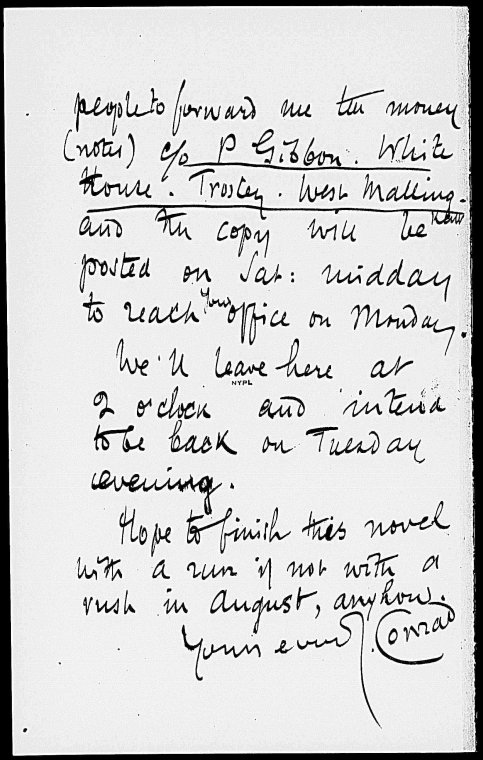 people to forward me the money
(notes) c/o P Gibbon. White
House. Trosley. West Malling.
and the copy will be
posted on Sat: midday
to reach your office on Monday.
We'll leave here at
NYPL
2 o'clock and intend
to be back on Tuesday
evening.
Hope to finish this novel
with a run if not with a
rush in August, anyhow.
Yours ever J. Conrad